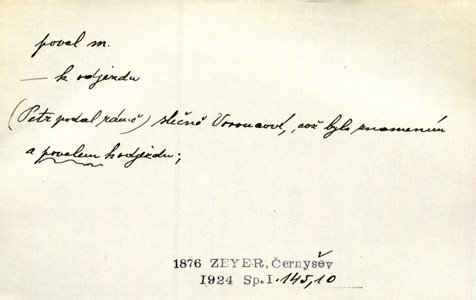 povel m.
— k odjezdu
(Petr podal rámě) slečně Voroncové, což bylo znamením
a povelem k odjezdu;
1876 ZEYER, Černyšev
1924 Sp.I. 145,10